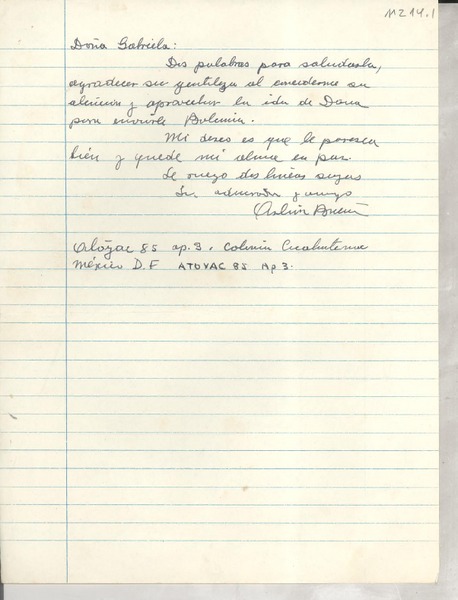 M214.1
Doña Gabriela:
Dos palabras para saludarla,
agradecer su gentileza al concederme su
atención y aprovechar la ida de Dana
para enviarle Bohemia.
Mi deseo es que le parezca
bién y quede mi alma en paz.
Le ruego dos lineas suyas
Su admirador y amigo
Atoyac 85 ap. 3, Colonia Cuauhtemoc
México D.F ATOYAC 85 Ap 3.